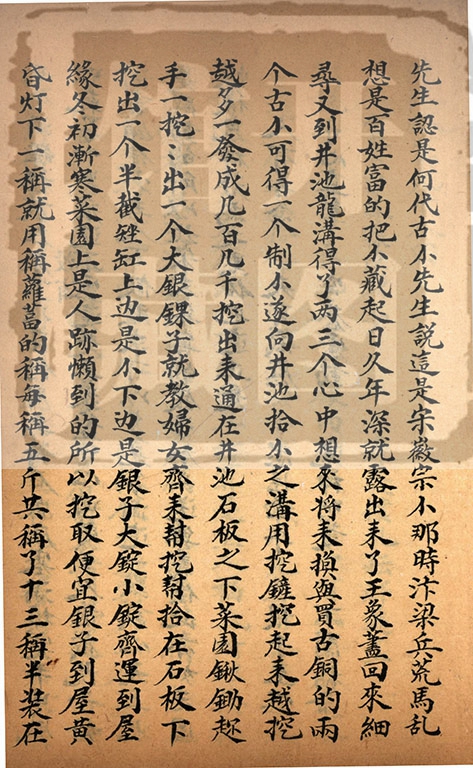 先生認是何代古小先生説這是宋徽宗小那時汴梁兵荒馬乱
想是百姓富的把小藏起日久年深就露出来了王象藎回來細
尋又到井池龍溝得了两三个心中想來將来損與買古銅的兩
个古小可得一个制小遂向井池拾小之溝用挖鏟挖起来越挖
越多一發成几百几千挖出来通在井池石板之下菜園鍬鋤起
手一挖〻出一个大銀錁子就教婦女齊来幇挖幇拾在石板下
挖出一个半截矬缸上边是小下边是銀子大錠小錠齊運到屋
緣冬初漸寒菜園上是人跡懶到的所以挖取便宜銀子到屋黄
昏灯下一稱就用稱蘿蔔的稱每稱五斤共稱了十三稱半装在